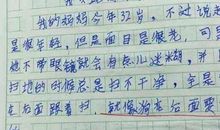 我的妈妈今年32岁,不过说是
是很年轻,但是面目是很老,可是
她不带眼镜就会有点儿迷糊,并
扫地的时候总是扫不干净,全是
在后面跟着扫,就像狗在后面要